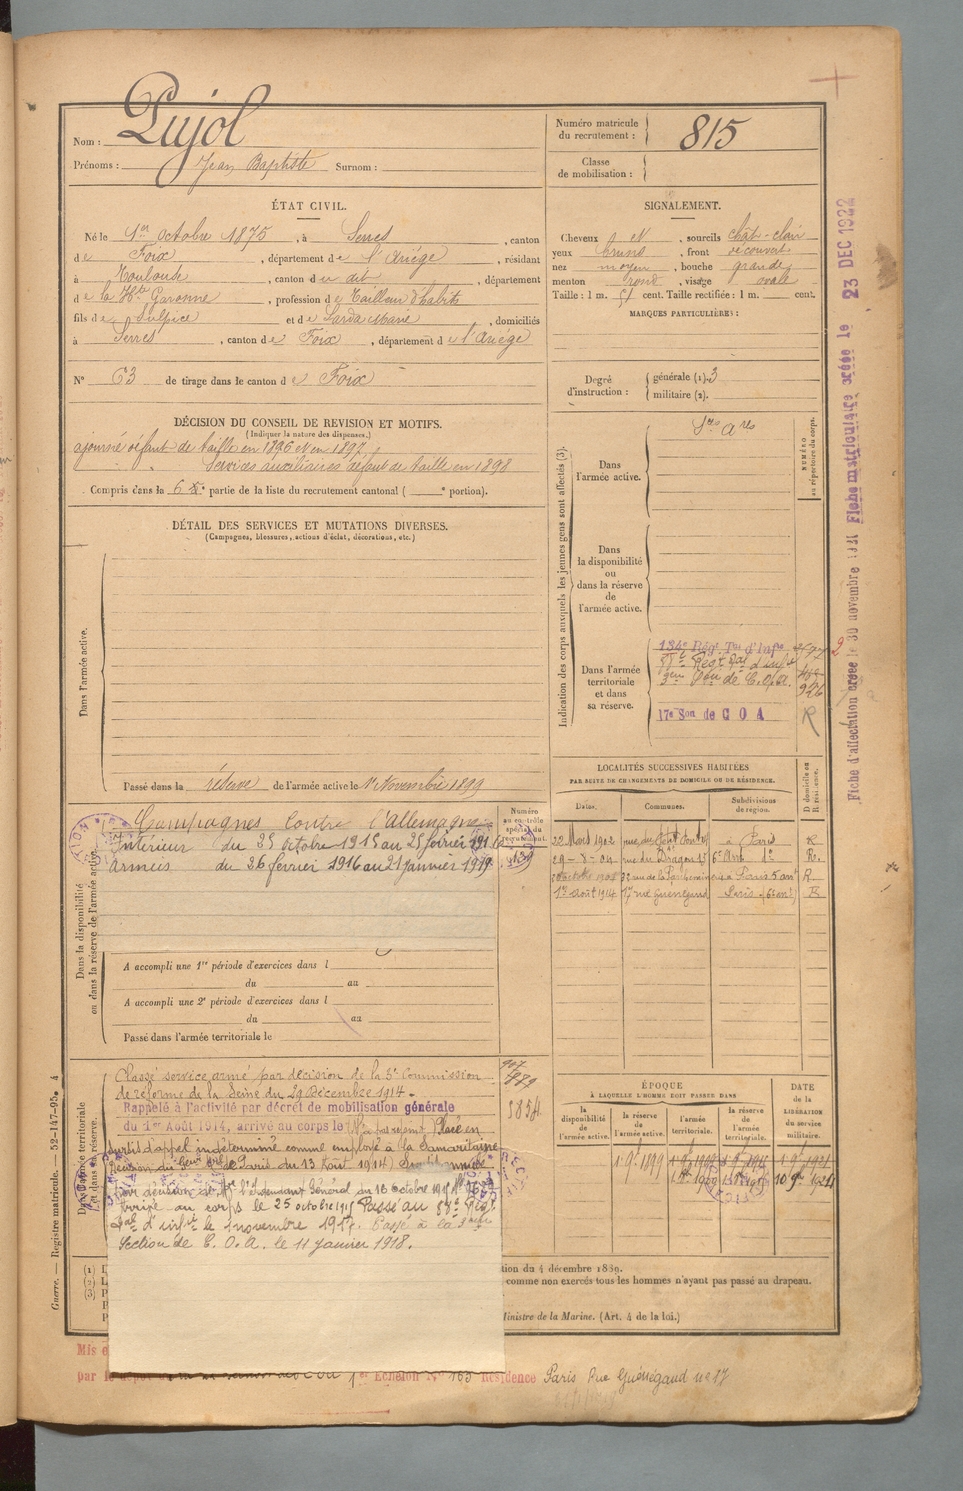 Nom : Pujol
Prénoms : Jean Baptiste Surnom :
Numéro matricule du recrutement : 815
Classe de mobilisation :
ÉTAT CIVIL.
Né le 1er octobre 1875, à Serres, canton
de Foix, département de l'Ariège, résidant
à Toulouse, canton du dit, département
de la Hte Garonne, profession de Tailleur d'habits
fils de Sulpice et de Sarda Marie, domiciliés
à Serres, canton de Foix, département de l'Ariège
N° 63 de tirage dans le canton de Foix
SIGNALEMENT.
Cheveux et, sourcils chât-clair
yeux bruns, front découvert
nez moyen, bouche grande
menton rond, visage ovale
Taille : 1 m. 51 cent. Taille rectifiée : 1 m. cent.
MARQUES PARTICULIÈRES :
Degré d'instruction : générale (1). 3
militaire (2).
DÉCISION DU CONSEIL DE REVISION ET MOTIFS.
(Indiquer la nature des dispenses.)
ajourné défaut de taille en 1896 et en 1897
Services auxiliaires défaut de taille en 1898
Compris dans la 6e partie de la liste du recrutement cantonal ( e portion).
DÉTAIL DES SERVICES ET MUTATIONS DIVERSES.
(Campagnes, blessures, actions d'éclat, décorations, etc.)
Dans l'armée active.
Passé dans la réserve de l'armée active le 1er Novembre 1899
Indication des corps auxquels les jeunes gens sont affectés (3).
NUMÉRO au répertoire du corps.
Dans l'armée active.
Dans la disponibilité ou dans la réserve de l'armée active.
Dans l'armée territoriale et dans sa réserve.
134e Régt Tal d'Infie
3e Son de C.O.A. 926
17e Son de COA R
Dans la disponibilité ou dans la réserve de l'armée active.
Numéro au contrôle spécial du recrutement.
Campagnes contre l'Allemagne
Intérieur du 25 octobre 1915 au 25 février 1916
armées du 26 fevrier 1916 au 21 janvier 1919
A accompli une 1re période d'exercices dans l
du au
A accompli une 2e période d'exercices dans l
du au
Passé dans l'armée territoriale le
LOCALITÉS SUCCESSIVES HABITÉES
PAR SUITE DE CHANGEMENTS DE DOMICILE OU DE RÉSIDENCE.
Dates. Communes. Subdivisions de région. D domicile ou R résidence.
22 Mars 1902 à Paris R
29-8-04 rue du Dragon 6e Arrt do R.
Paris 5 arrt R
1er août 1914 17 rue Guénégaud Paris (6e arrt) R
Dans l'armée territoriale et dans sa réserve.
Classé service armé par décision de la 3e Commission
de réforme de la Seine du 29 Décembre 1914.
Rappelé à l'activité par décret de mobilisation générale
du 1er Août 1914, arrivé au corps le Placé en
sursis d'appel indéterminé comme employé à la Samaritaine
décision du Gouvr de Paris du 13 Août 1914)
par décision de Mr l'Intendant Général du 16 octobre 1915
Arrivé au corps le 25 octobre 1915 Passé au 88e Régt
Tal d'infie le 1 novembre 1917. Passé à la 3eme
Section de C.O.A. le 11 janvier 1918.
ÉPOQUE
À LAQUELLE L'HOMME DOIT PASSER DANS
DATE DE LA LIBÉRATION du service militaire.
la disponibilité de l'armée active. la réserve de l'armée active. l'armée territoriale. la réserve de l'armée territoriale.
1 9e 1899
tion du 4 décembre 1889.
comme non exercés tous les hommes n'ayant pas passé au drapeau.
Ministre de la Marine. (Art. 4 de la loi.)
Mis e
par le dépôt 1er Echelon N° 163 Résidence Paris Rue Guénégaud n° 17
Guerre. — Registre matricule. — 52-147-95. 4
Fiche d'affectation créée le 30 novembre 1921 Fiche matriculaire créée le 23 DEC 1922